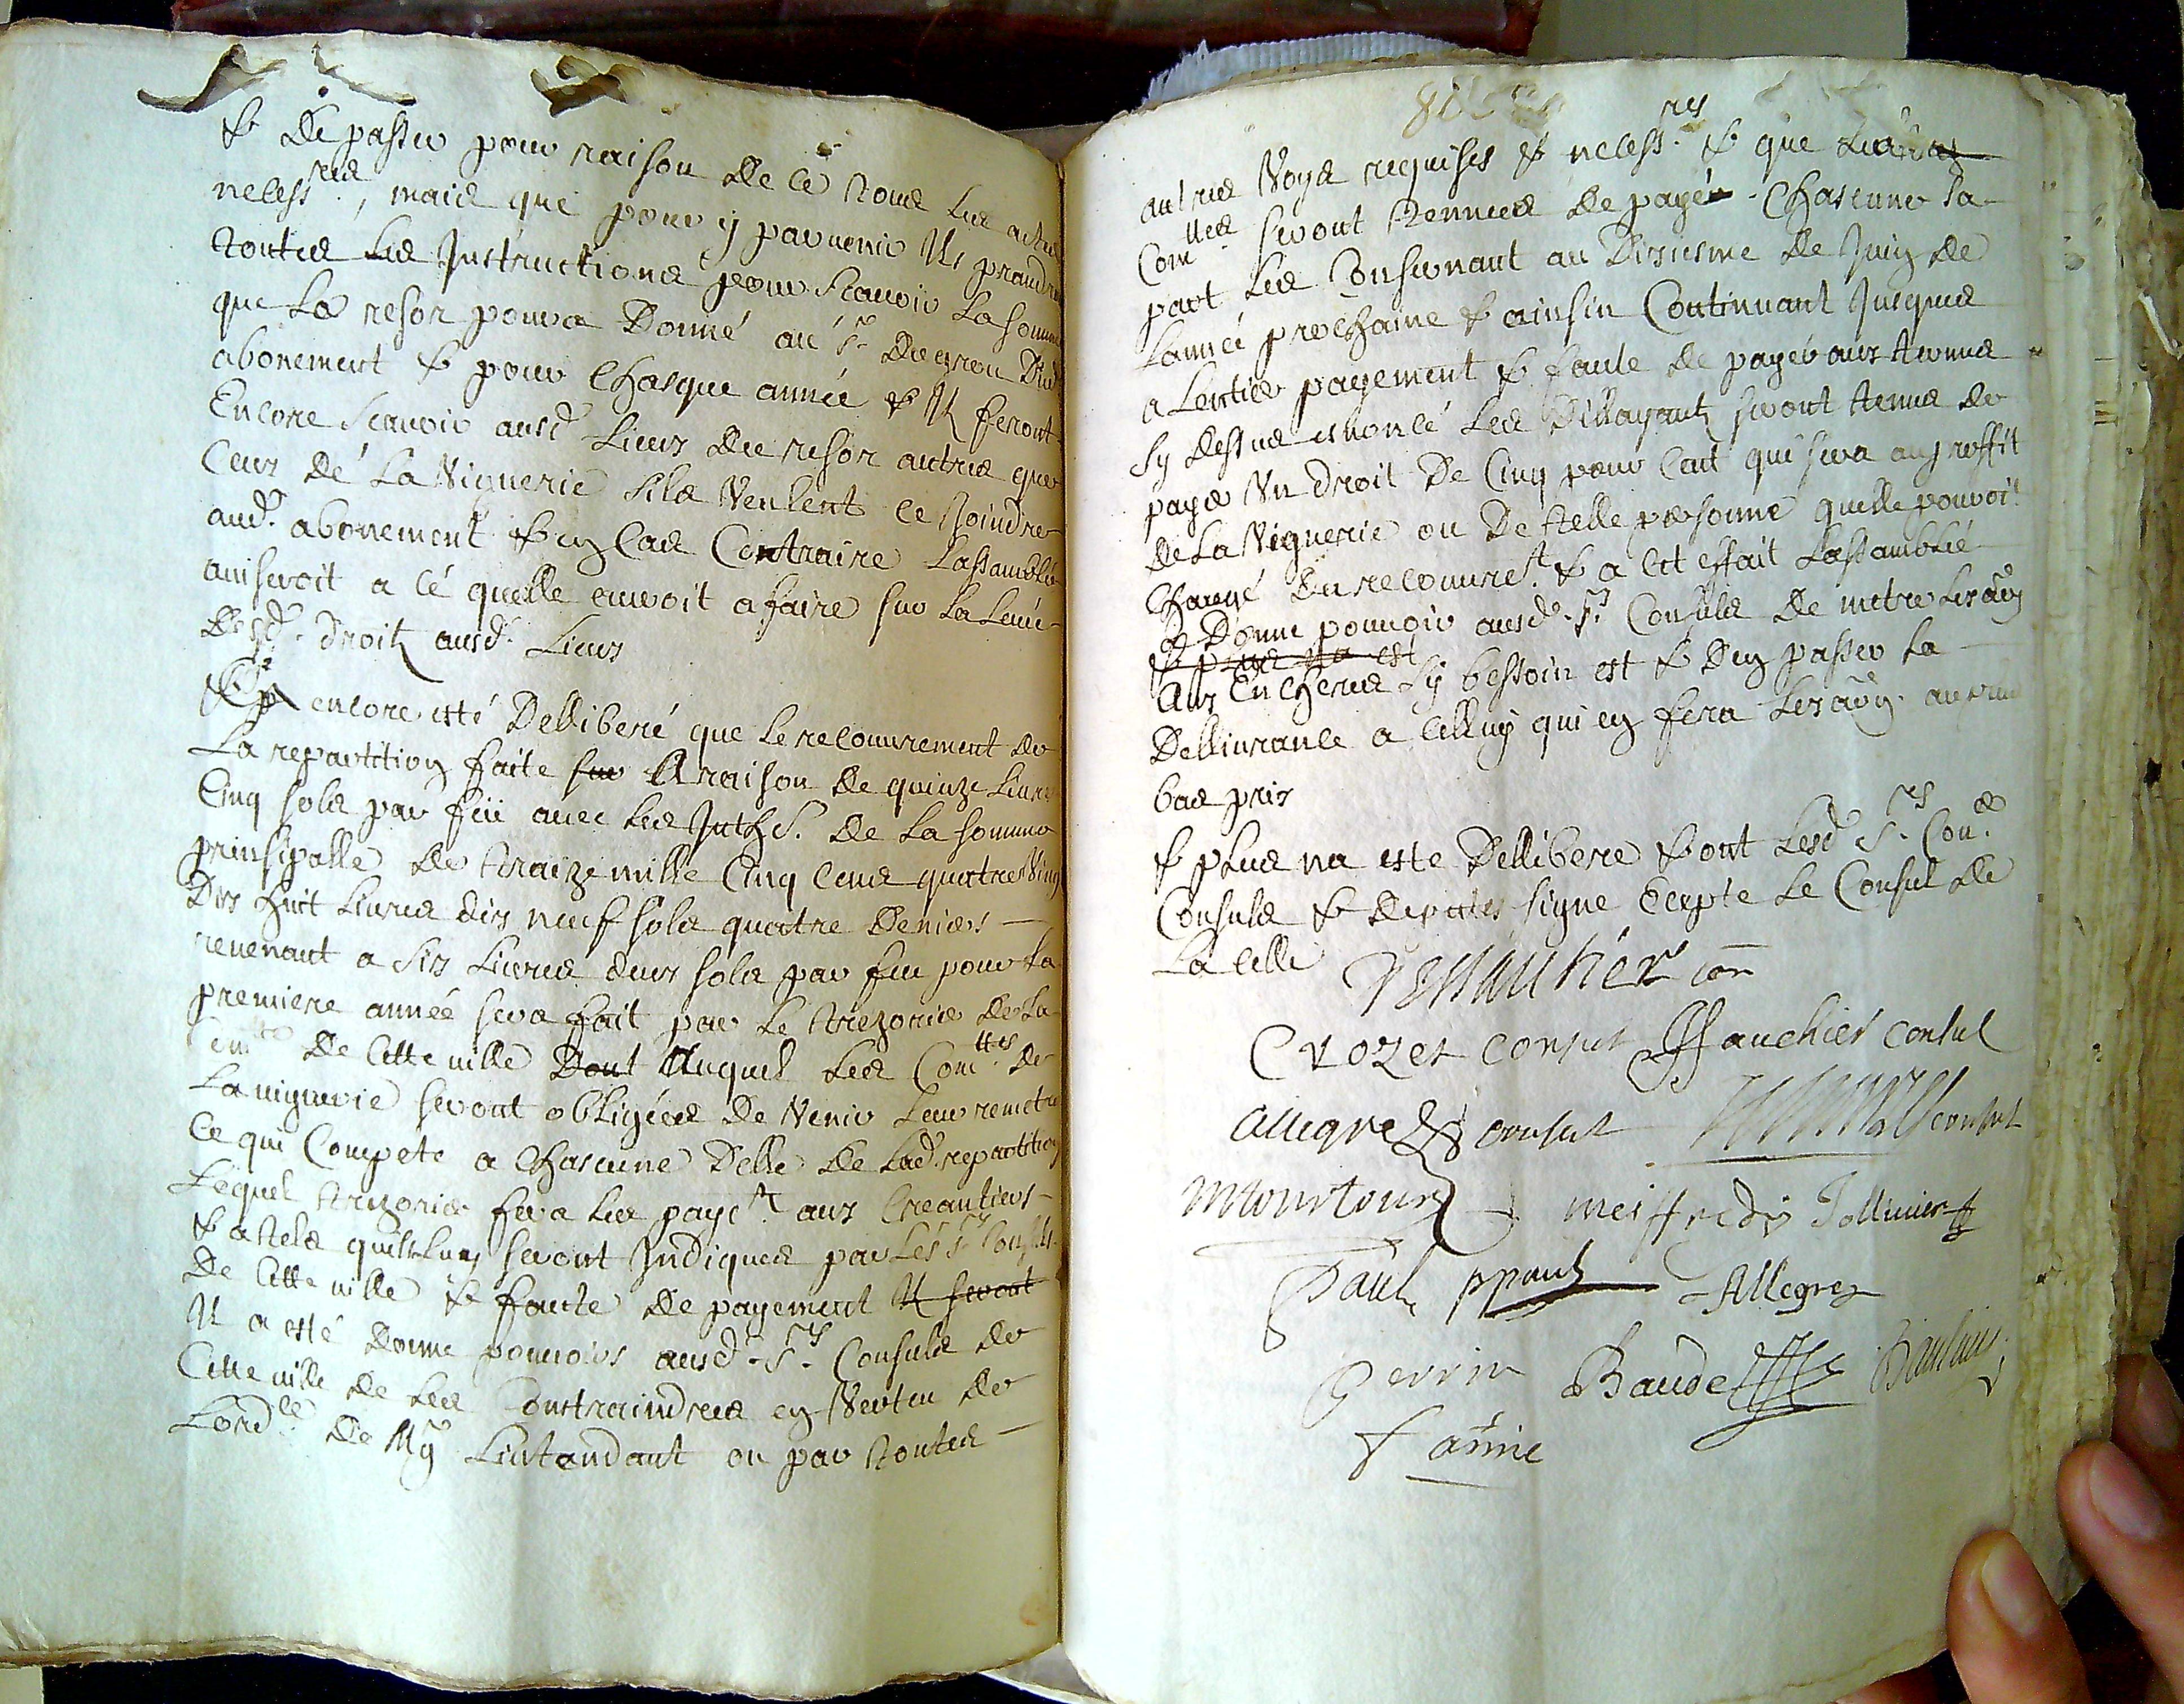 & de passer pour raison de ce tous les actes
necess.res, mais que pour y parvenir ils prandro
toutes les Instructions pour scavoir la somme
que le resor pourra donné au sr
abonement & pour chasque année & Il feront
Encore scavoir ausd. lieux du resor autres que
ceux dé la viguerie sils veulent ce Joindre
aud. abonement & en cas Contraire Lassamblée
aviseroit a cé quelle auroit a faire sur la levée
desd. droitz ausd. Lieux
encore esté dellibéré que le recouvrement de
la repartition faite sur A raison de quinze livres
Cinq sols par feu avec les Inthts. de la somme
prinsipalle de traize mille Cinq cens quatre vingt
dix huit livres dix neuf sols quatre deniers
revenant a six livres deux sols par feu pour la
premiere année sera fait par le trezorier de la
comté de cette ville Dont Auquel les Comttes de
la viguerie seront obligées de venir leur remettre
ce qui compete a chascune delle de lad. repartition
Lequel trezorier fera les payet. aux creantiers
& a tels quils luy seront Indiqués par les srs Consuls
de cette ville & faute de payement Il seront
Il a esté donné pouvoirs ausd. srs Consuls de
cette ville de les contraindres en vertu de
lordce de Mgr Lintandant ou par toutes
autres voyes requises & necess.res & que
Comttes seront tenues de payér chascune sa
part les Consernant au dixiesme de Juin de
lannée prochaine & ainsin Continuant Jusques
a lentier payement & faute de payér aux termes
sy dessus enoncé les dillayants seront tenus de
payer un droit de cinq pour cent qui sera au proffit
de la viguerie ou de telle personne quelle pouroit
chargé du recouvret. & a cet effait Lassamblée
a donne pouvoir ausd. srs Consuls de metre
& plus na est
aux Encheres sy bessoin est & den passer la
dellivrance a celluy qui en fera
bas prix
& plus na este dellibere & ont lesd srs Con.
Consuls & deputés signe Ecepte le Consul de
la celle
Crozet consul Fauchier consul
allegre consul consul
Mourtour meiffredy Jollivier
Paul ppaul Allegre
Perrin Baude
fanie